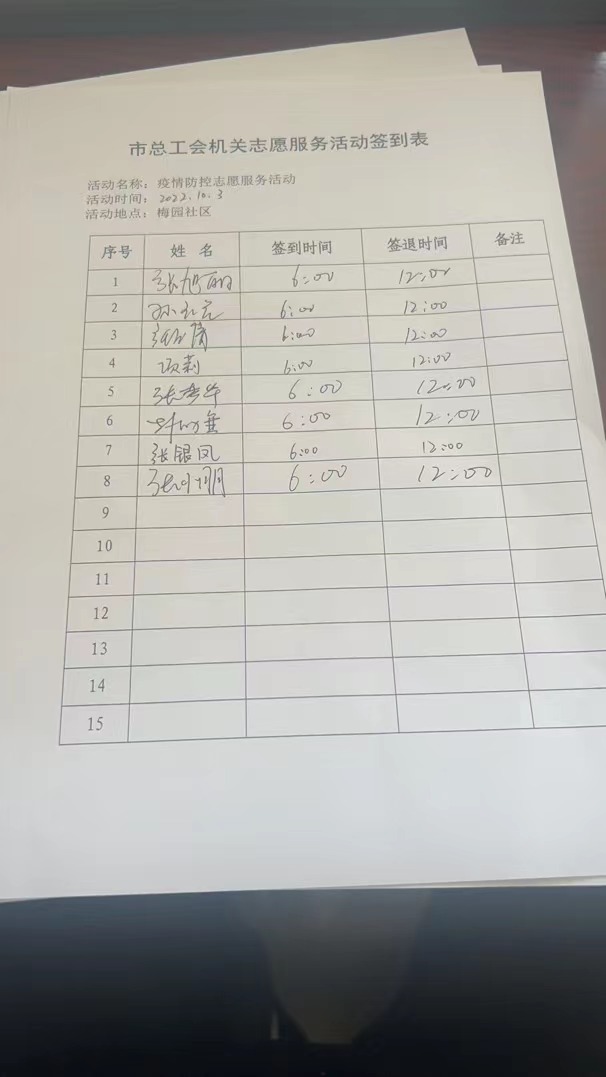 市总工会机关志愿服务活动签到表
活动名称：疫情防控志愿服务活动
活动时间：2022.10.3
活动地点：梅园社区
序号 姓 名 签到时间 签退时间 备注
1 张旭 6:00 12:00
2 孙 6:00 12:00
3 张 6:00 12:00
4 项莉 6:00 12:00
5 张 华 6:00 12:00
6 6:00 12:00
7 张银凤 6:00 12:00
8 张 6:00 12:00
9
10
11
12
13
14
15